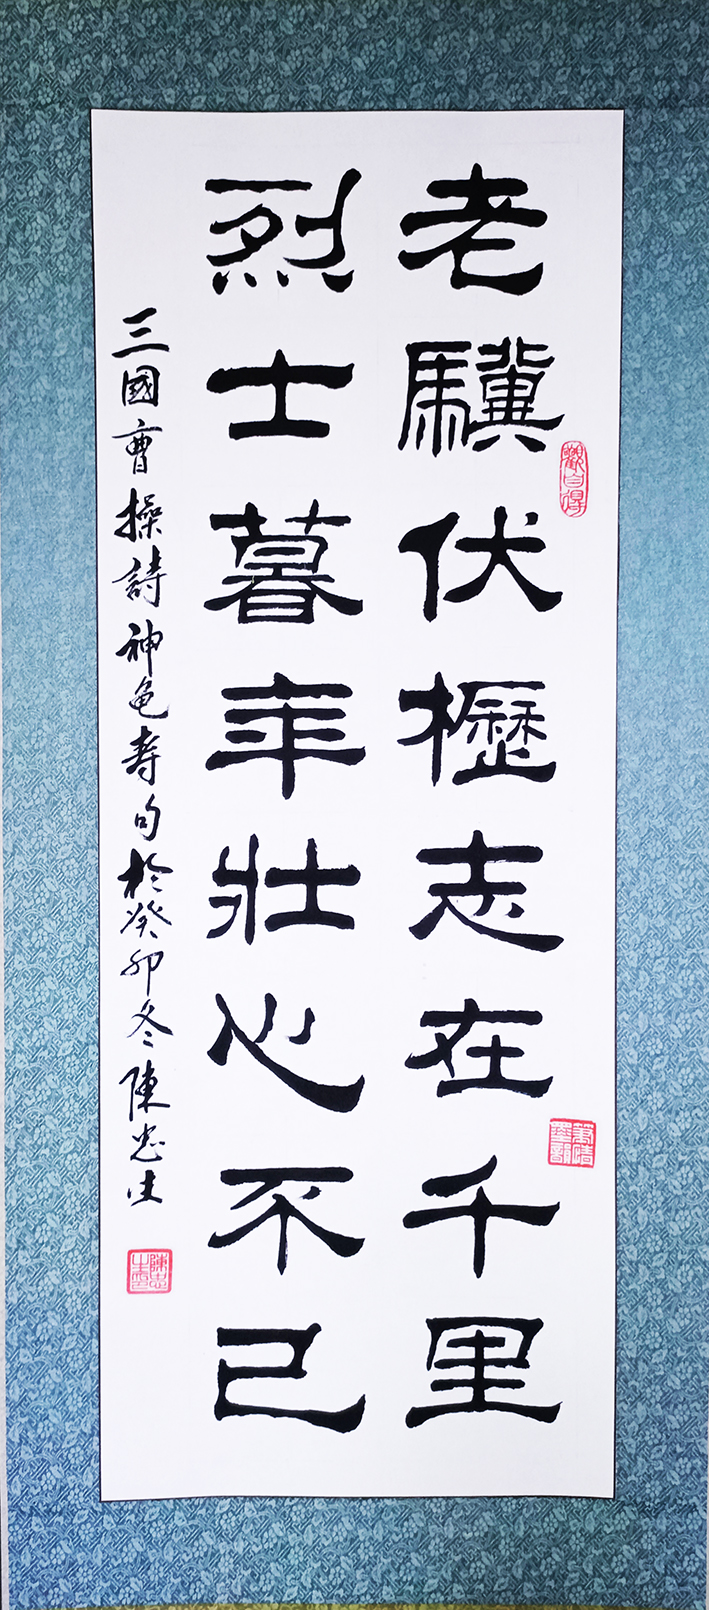 老驥伏櫪志在千里
烈士暮年壯心不已
三國曹操詩神龟寿句於癸卯冬陳忠生
觀自得
筆情墨韻
陳忠生印